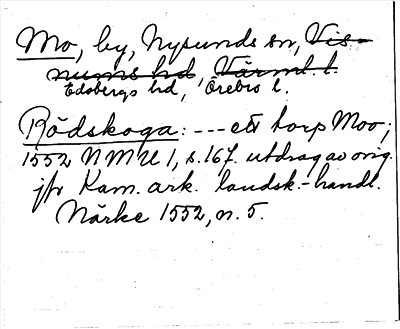 Mo, by, Nysunds sn, Vis-
nums hd, Värml. l.
Edsbergs hd, Örebro l.
Rådskoga: --- ett torp Moo;
1552 NMU 1, s. 167. utdrag av orig.
jfr Kam. ark. landsk.-handl.
Närke 1552, n. 5.